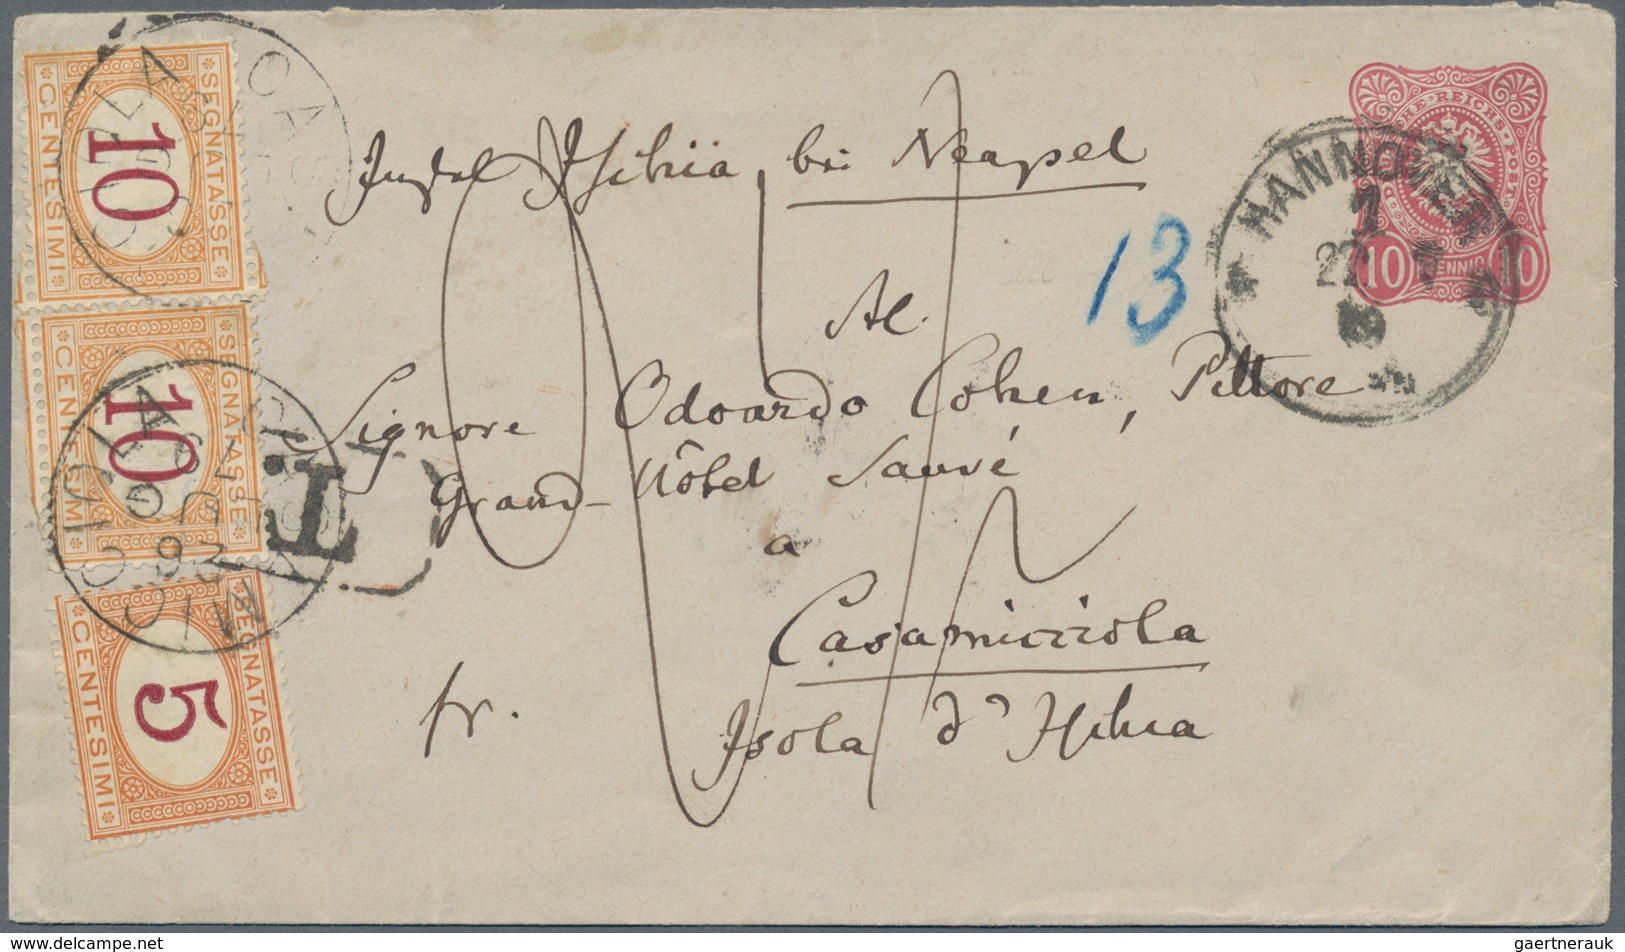 Insel Ischia bei Neapel
13
Al.
Signore Odoardo Cohen, Pittore
Grand-Hôtel Sauvé
a
Casamicciola
fr.
Isola d'Ischia
SEGNATASSE
10
CENTESIMI
SEGNATASSE
10
CENTESIMI
SEGNATASSE
5
CENTESIMI
T.
HANNO
1
REICHS-POST
10 PFENNIG 10
delcampe.net
gaertnerauk